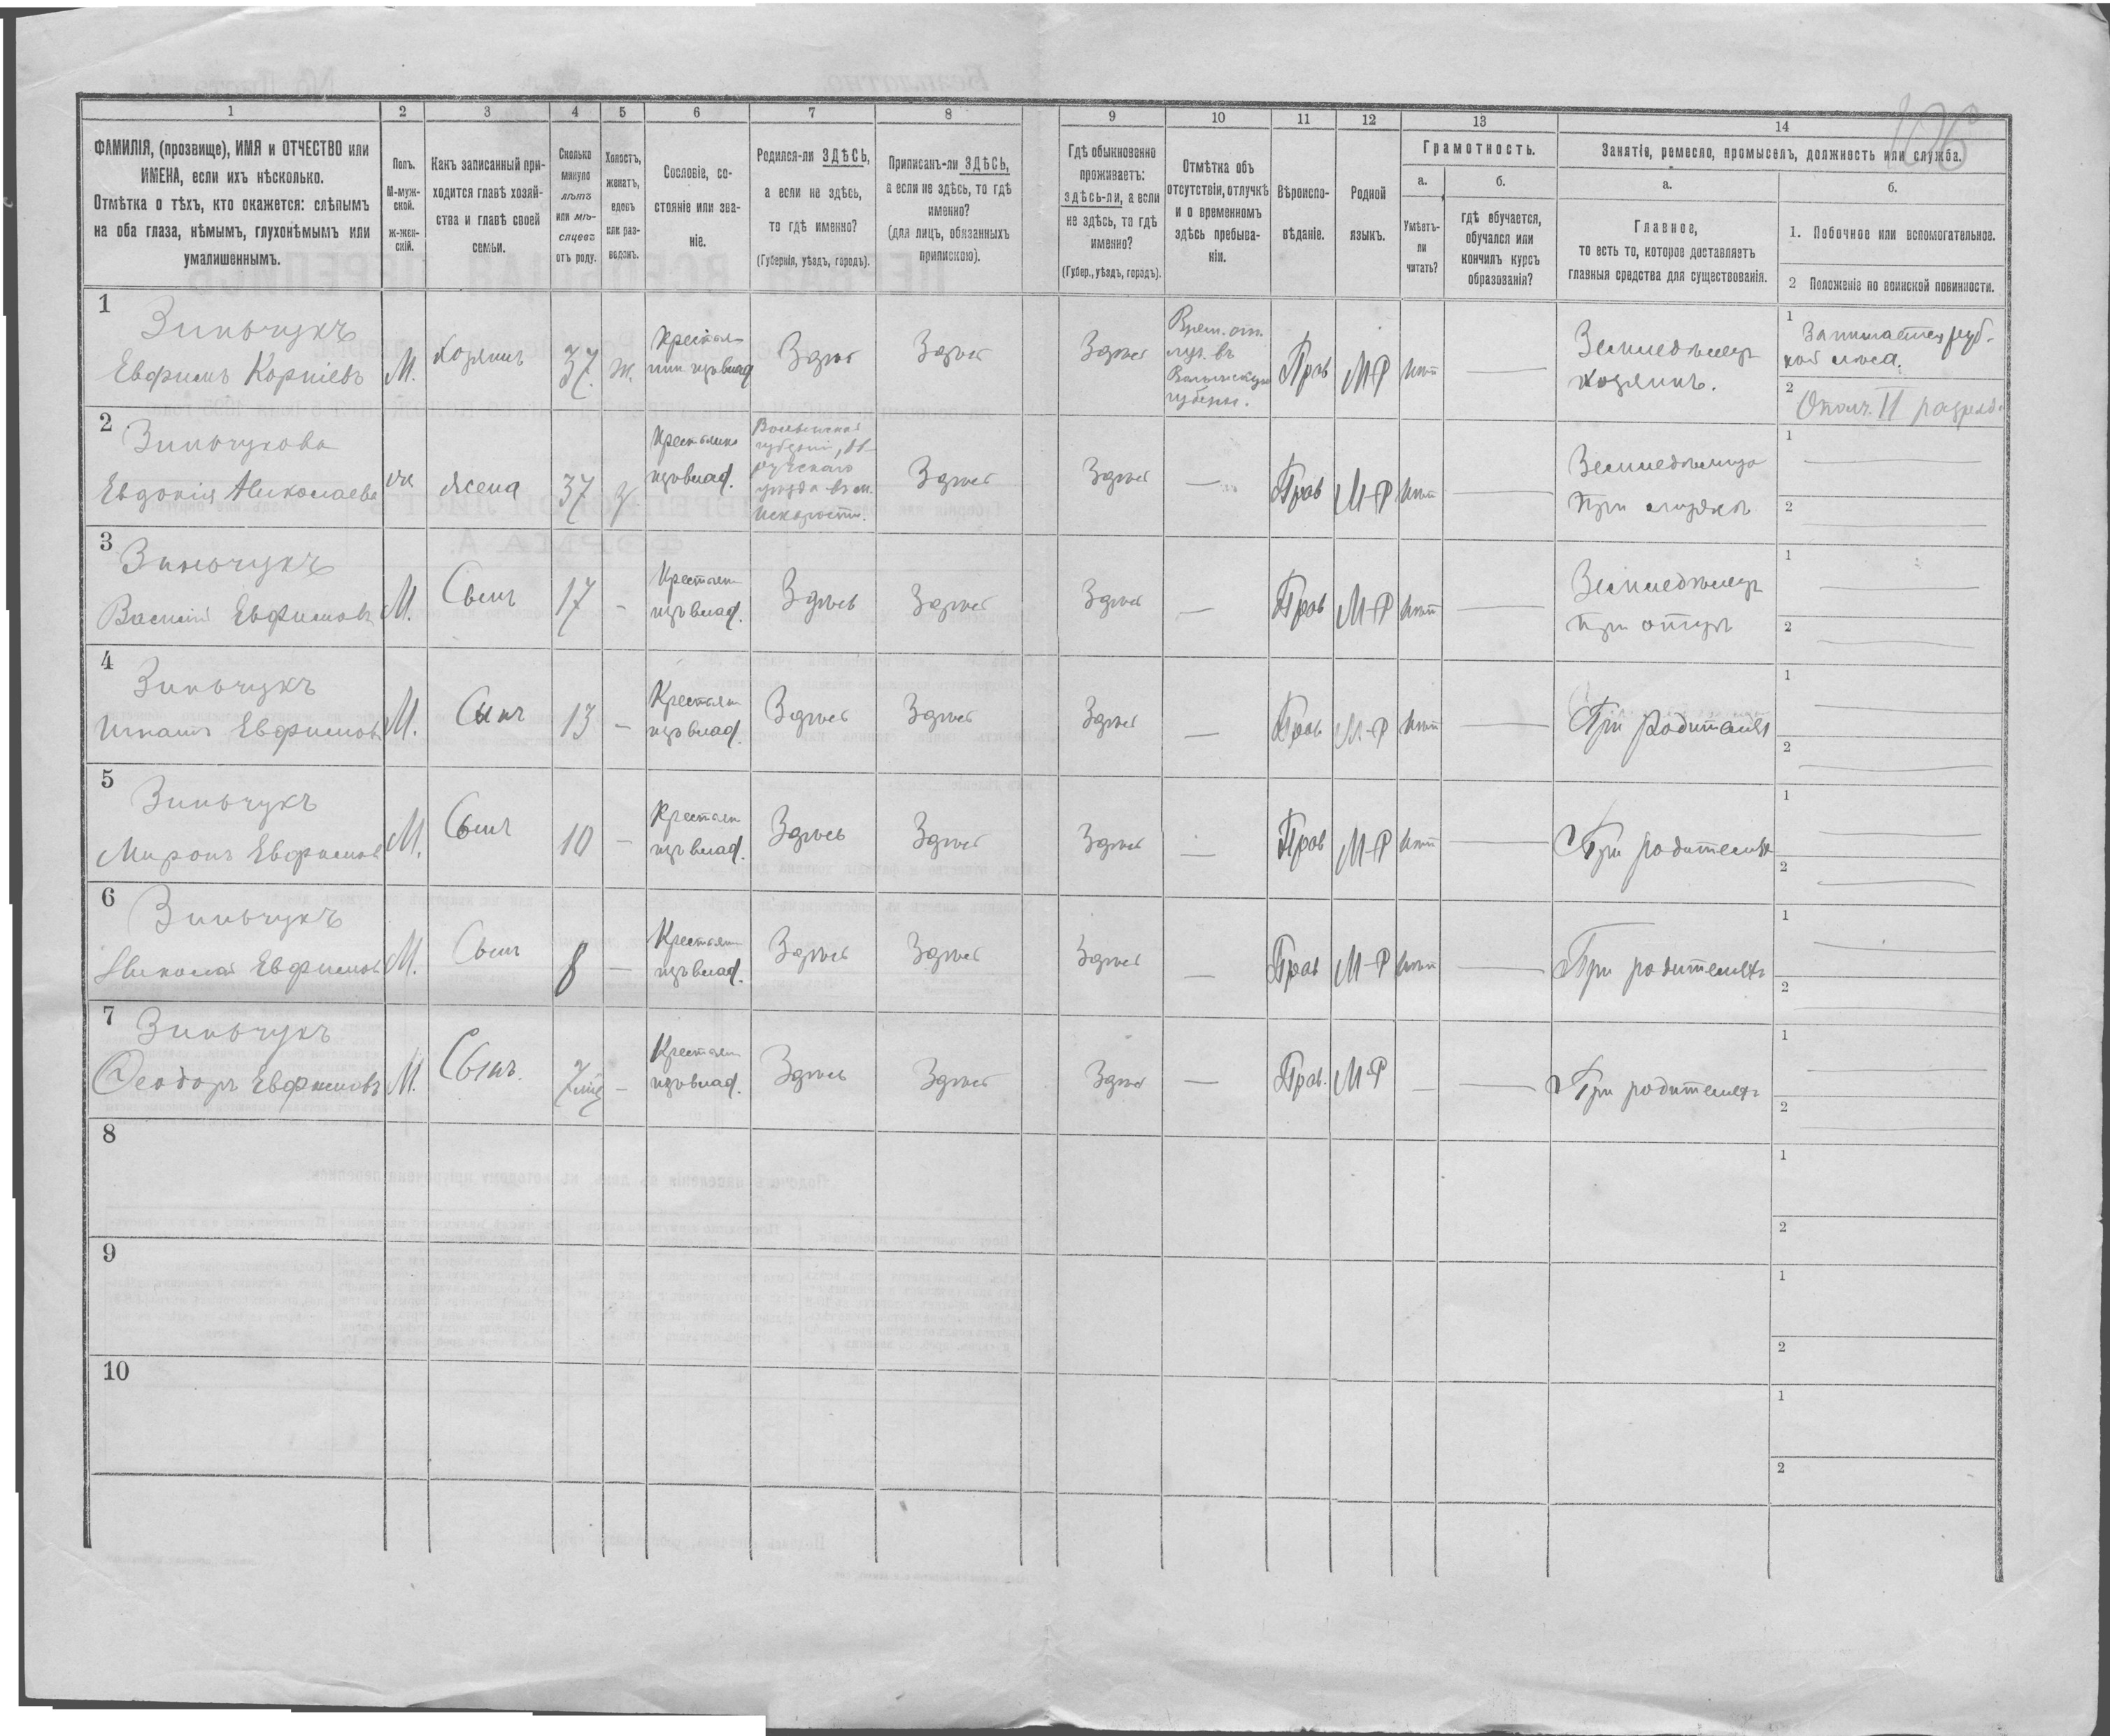 106
1
2
3
4
5
6
7
8
9
10
11
12
13
14
ФАМИЛІЯ, (прозвище), ИМЯ и ОТЧЕСТВО или
ИМЕНА, если ихъ нѣсколько.
Отмѣтка о тѣхъ, кто окажется: слѣпымъ
на оба глаза, нѣмымъ, глухонѣмымъ или
умалишеннымъ.
Полъ.
М-муж-
ской.
Ж-жен-
скій.
Какъ записанный при-
ходится главѣ хозяй-
ства и главѣ своей
семьи.
Сколько
минуло
лѣтъ
или мѣ-
сяцевъ
отъ роду.
Холостъ,
женатъ,
вдовъ
или раз-
веденъ.
Сословіе, со-
стояніе или зва-
ніе.
Родился-ли ЗДѢСЬ,
а если не здѣсь,
то гдѣ именно?
(Губернія, уѣздъ, городъ).
Приписанъ-ли ЗДѢСЬ,
а если не здѣсь, то гдѣ
именно?
(для лицъ, обязанныхъ
припискою).
Гдѣ обыкновенно
проживаетъ:
здѣсь-ли, а если
не здѣсь, то гдѣ
именно?
(Губер., уѣздъ, городъ).
Отмѣтка объ
отсутствіи, отлучкѣ
и о временномъ
здѣсь пребыва-
ніи.
Вѣроиспо-
вѣданіе.
Родной
языкъ.
Грамотность.
а.
Умѣетъ-
ли
читать?
б.
гдѣ обучается,
обучался или
кончилъ курсъ
образованія?
Занятіе, ремесло, промыселъ, должность или служба.
а.
Главное,
то есть то, которое доставляетъ
главныя средства для существованія.
б.
1. Побочное или вспомогательное.
2 Положеніе по воинской повинности.
1
Зиньчукъ
Евфимъ Корніевъ
М.
Хозяинъ
37
ж.
Крестья-
нин изъ влад
Здѣсь
Здѣсь
Здѣсь
Врем. от-
луч. въ
Волынскую
губерн.
Прав
М-Р
Нѣт
Земледѣлецъ
хозяинъ.
1
Занимается руб-
кой лѣса.
2
Ополч. II разряд.
2
Зиньчукова
Евдокія Николаева
ж
жена
37
з
Крестьянка
изъ влад.
Волынской
губерніи, Ов-
ручскаго
уѣзда въ м.
Искорости.
Здѣсь
Здѣсь
Прав
М-Р
Нѣт
Земледѣлица
при мужѣ
1
2
3
Зиньчукъ
Василій Евфимовъ
М.
Сынъ
17
Крестьян
изъ влад.
Здѣсь
Здѣсь
Здѣсь
Прав
М-Р
Нѣт
Земледѣлецъ
при отцѣ
1
2
4
Зиньчукъ
Игнатъ Евфимов
М.
Сынъ
13
Крестьян
изъ влад.
Здѣсь
Здѣсь
Здѣсь
Прав
М-Р
Нѣт
При родителях
1
2
5
Зиньчукъ
Миронъ Евфимов
М.
Сынъ
10
Крестьян
изъ влад.
Здѣсь
Здѣсь
Здѣсь
Прав
М-Р
Нѣт
При родителях
1
2
6
Зиньчукъ
Николай Евфимов
М.
Сынъ
8
Крестьян
изъ влад.
Здѣсь
Здѣсь
Здѣсь
Прав
М-Р
Нѣт
При родителяхъ
1
2
7
Зиньчукъ
Ѳеодоръ Евфимовъ
М.
Сынъ.
7 мѣс
Крестьян
изъ влад.
Здѣсь
Здѣсь
Здѣсь
Прав.
М-Р
При родителяхъ
1
2
8
1
2
9
1
2
10
1
2